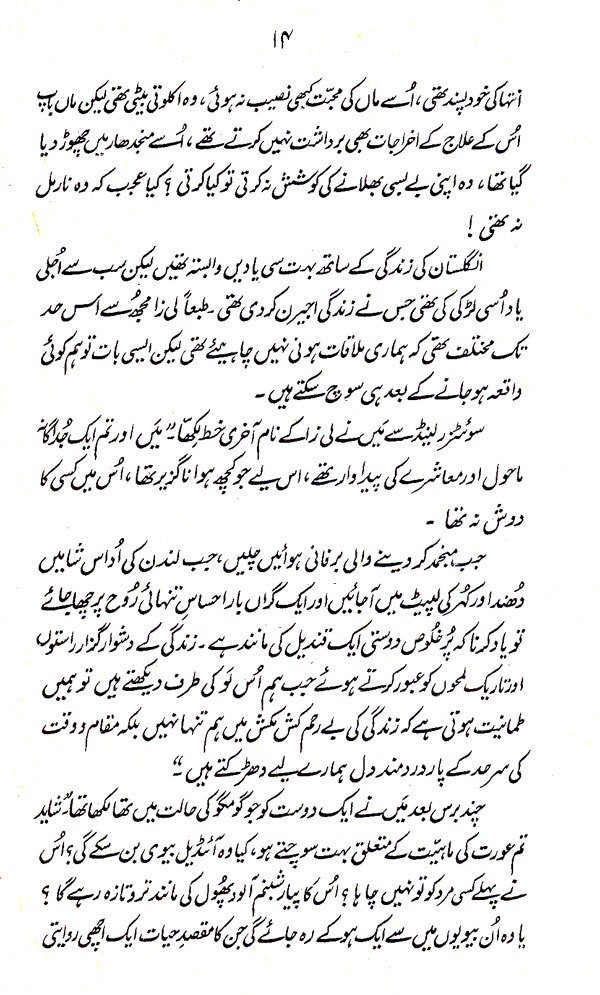 ۱۴
انتہا کی خود پسند تھی، اُسے ماں کی محبت کبھی نصیب نہ ہوئی، وہ اکلوتی بیٹی تھی لیکن ماں باپ
اُس کے علاج کے اخراجات بھی برداشت نہیں کرتے تھے، اُسے منجدھار میں چھوڑ دیا
گیا تھا، وہ اپنی بے بسی بھلانے کی کوشش نہ کرتی تو کیا کرتی؟ کیا عجب کہ وہ نارمل
نہ تھی!
انگلستان کی زندگی کے ساتھ بہت سی یادیں وابستہ تھیں لیکن سب سے اُجلی
یاد اُسی لڑکی کی تھی جس نے زندگی اجیرن کر دی تھی۔ طبعاً لی زا مجھ سے اس حد
تک مختلف تھی کہ ہماری ملاقات ہونی نہیں چاہیئے تھی لیکن ایسی بات تو ہم کوئی
واقعہ ہو جانے کے بعد ہی سوچ سکتے ہیں۔
سوئٹزرلینڈ سے میں نے لی زا کے نام آخری خط لکھا۔ ”میں اور تم ایک جُداگانہ
ماحول اور معاشرے کی پیداوار تھے، اس لیے جو کچھ ہوا ناگزیر تھا، اُس میں کسی کا
دوش نہ تھا۔
جب منجمد کر دینے والی برفانی ہوائیں چلیں، جب لندن کی اُداس شامیں
دُھند اور کُہر کی لپیٹ میں آ جائیں اور ایک گراں بار احساسِ تنہائی رُوح پر چھا جائے
تو یاد کرنا کہ پُرخلوص دوستی ایک قندیل کی مانند ہے۔ زندگی کے دشوار گزار راستوں
اور تاریک لمحوں کو عبور کرتے ہوئے جب ہم اُس لَو کی طرف دیکھتے ہیں تو ہمیں
طمانیت ہوتی ہے کہ زندگی کی بے رحم کش مکش میں ہم تنہا نہیں بلکہ مقام و وقت
کی سرحد کے پار دردمند دل ہمارے لیے دھڑکتے ہیں“
چند برس بعد میں نے ایک دوست کو جو گو مگو کی حالت میں تھا لکھا تھا ”شاید
تم عورت کی ماہیت کے متعلق بہت سوچتے ہو، کیا وہ آئیڈیل بیوی بن سکے گی؟ اُس
نے پہلے کسی مرد کو تو نہیں چاہا؟ اُس کا پیار شبنم آلود پھول کی مانند تر و تازہ رہے گا؟
یا وہ اُن بیویوں میں سے ایک ہو کے رہ جائے گی جن کا مقصدِ حیات ایک اچھی روایتی